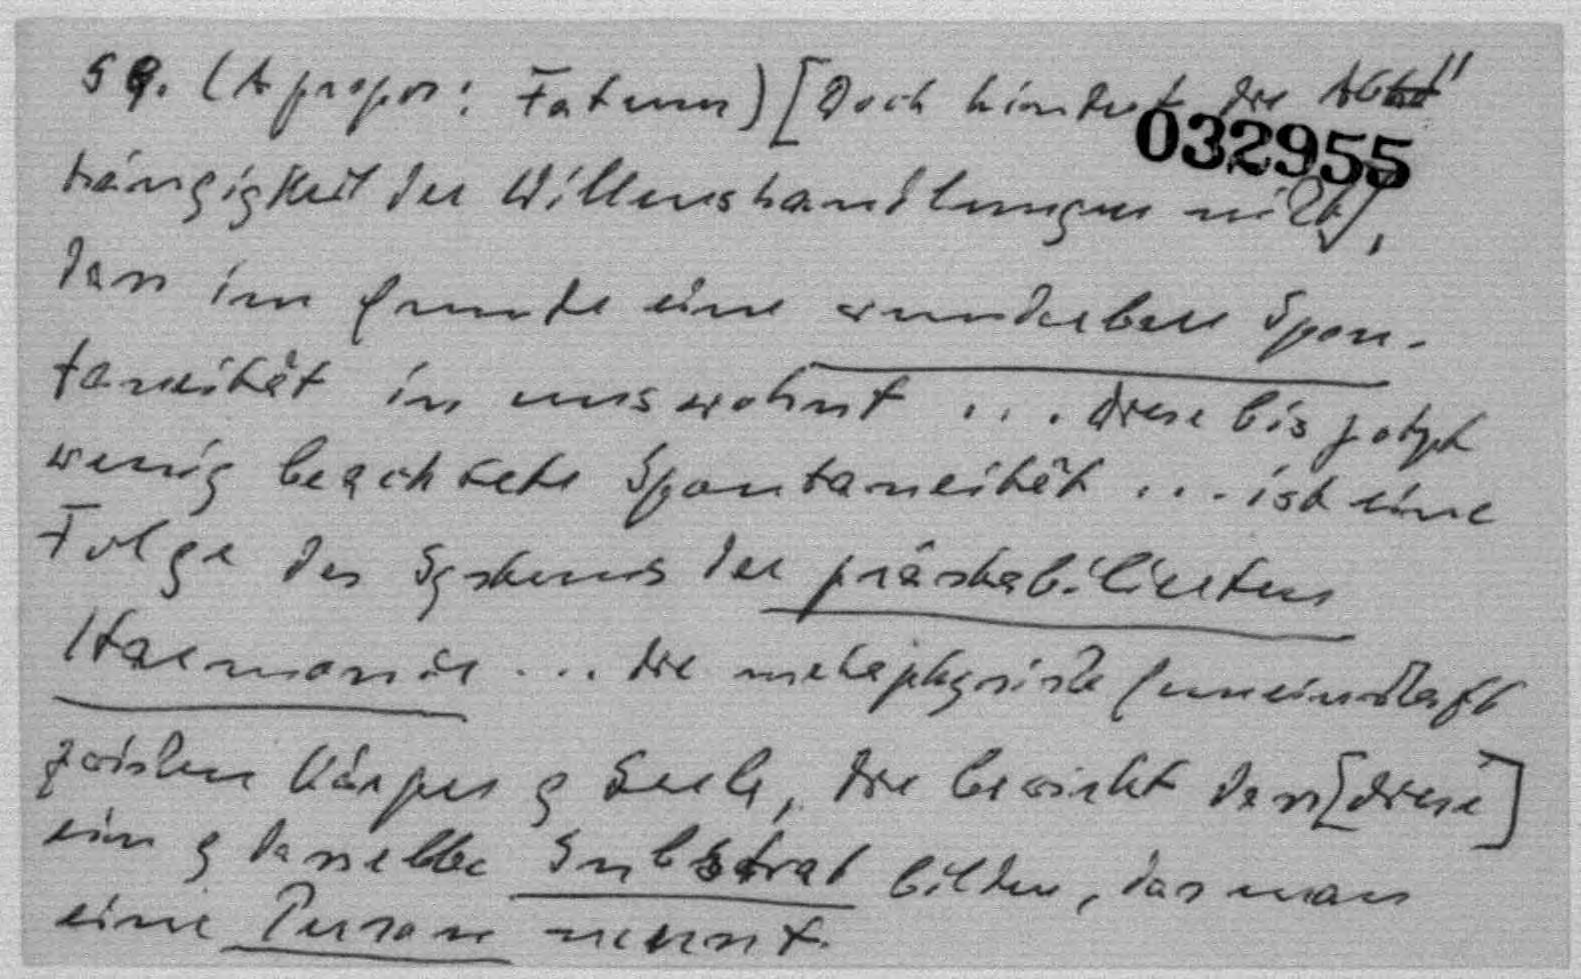 59. (A propos: Fatum) [Doch hindert die Ab"
032955
hängigkeit der Willenshandlungen nicht],
dass im Grunde eine wunderbare Spon-
taneität in uns wohnt ... diese bis jetzt
wenig beachtete Spontaneität ... ist eine
Folge des Systems der prästabilierten
Harmonie ... die metaphysische Gemeinschaft
zwischen Körper & Seele, die bewirkt dass [diese]
ein & dasselbe Substrat bilden, das man
eine Person nennt.